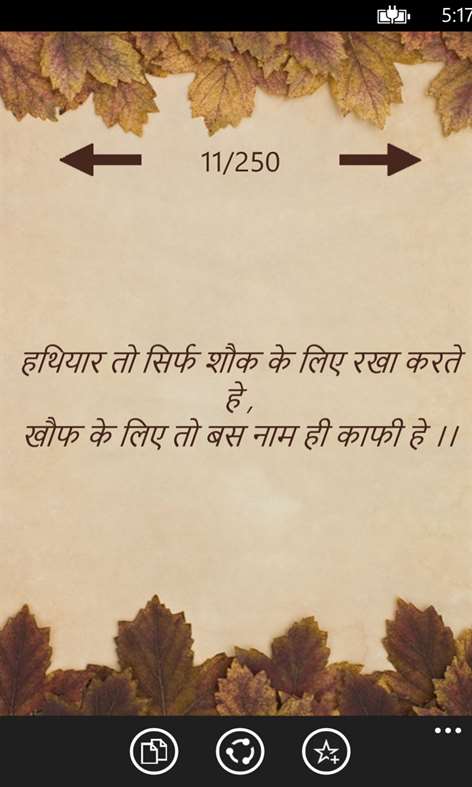 5:17
11/250
हथियार तो सिर्फ शौक के लिए रखा करते
हे ,
खौफ के लिए तो बस नाम ही काफी हे ।।